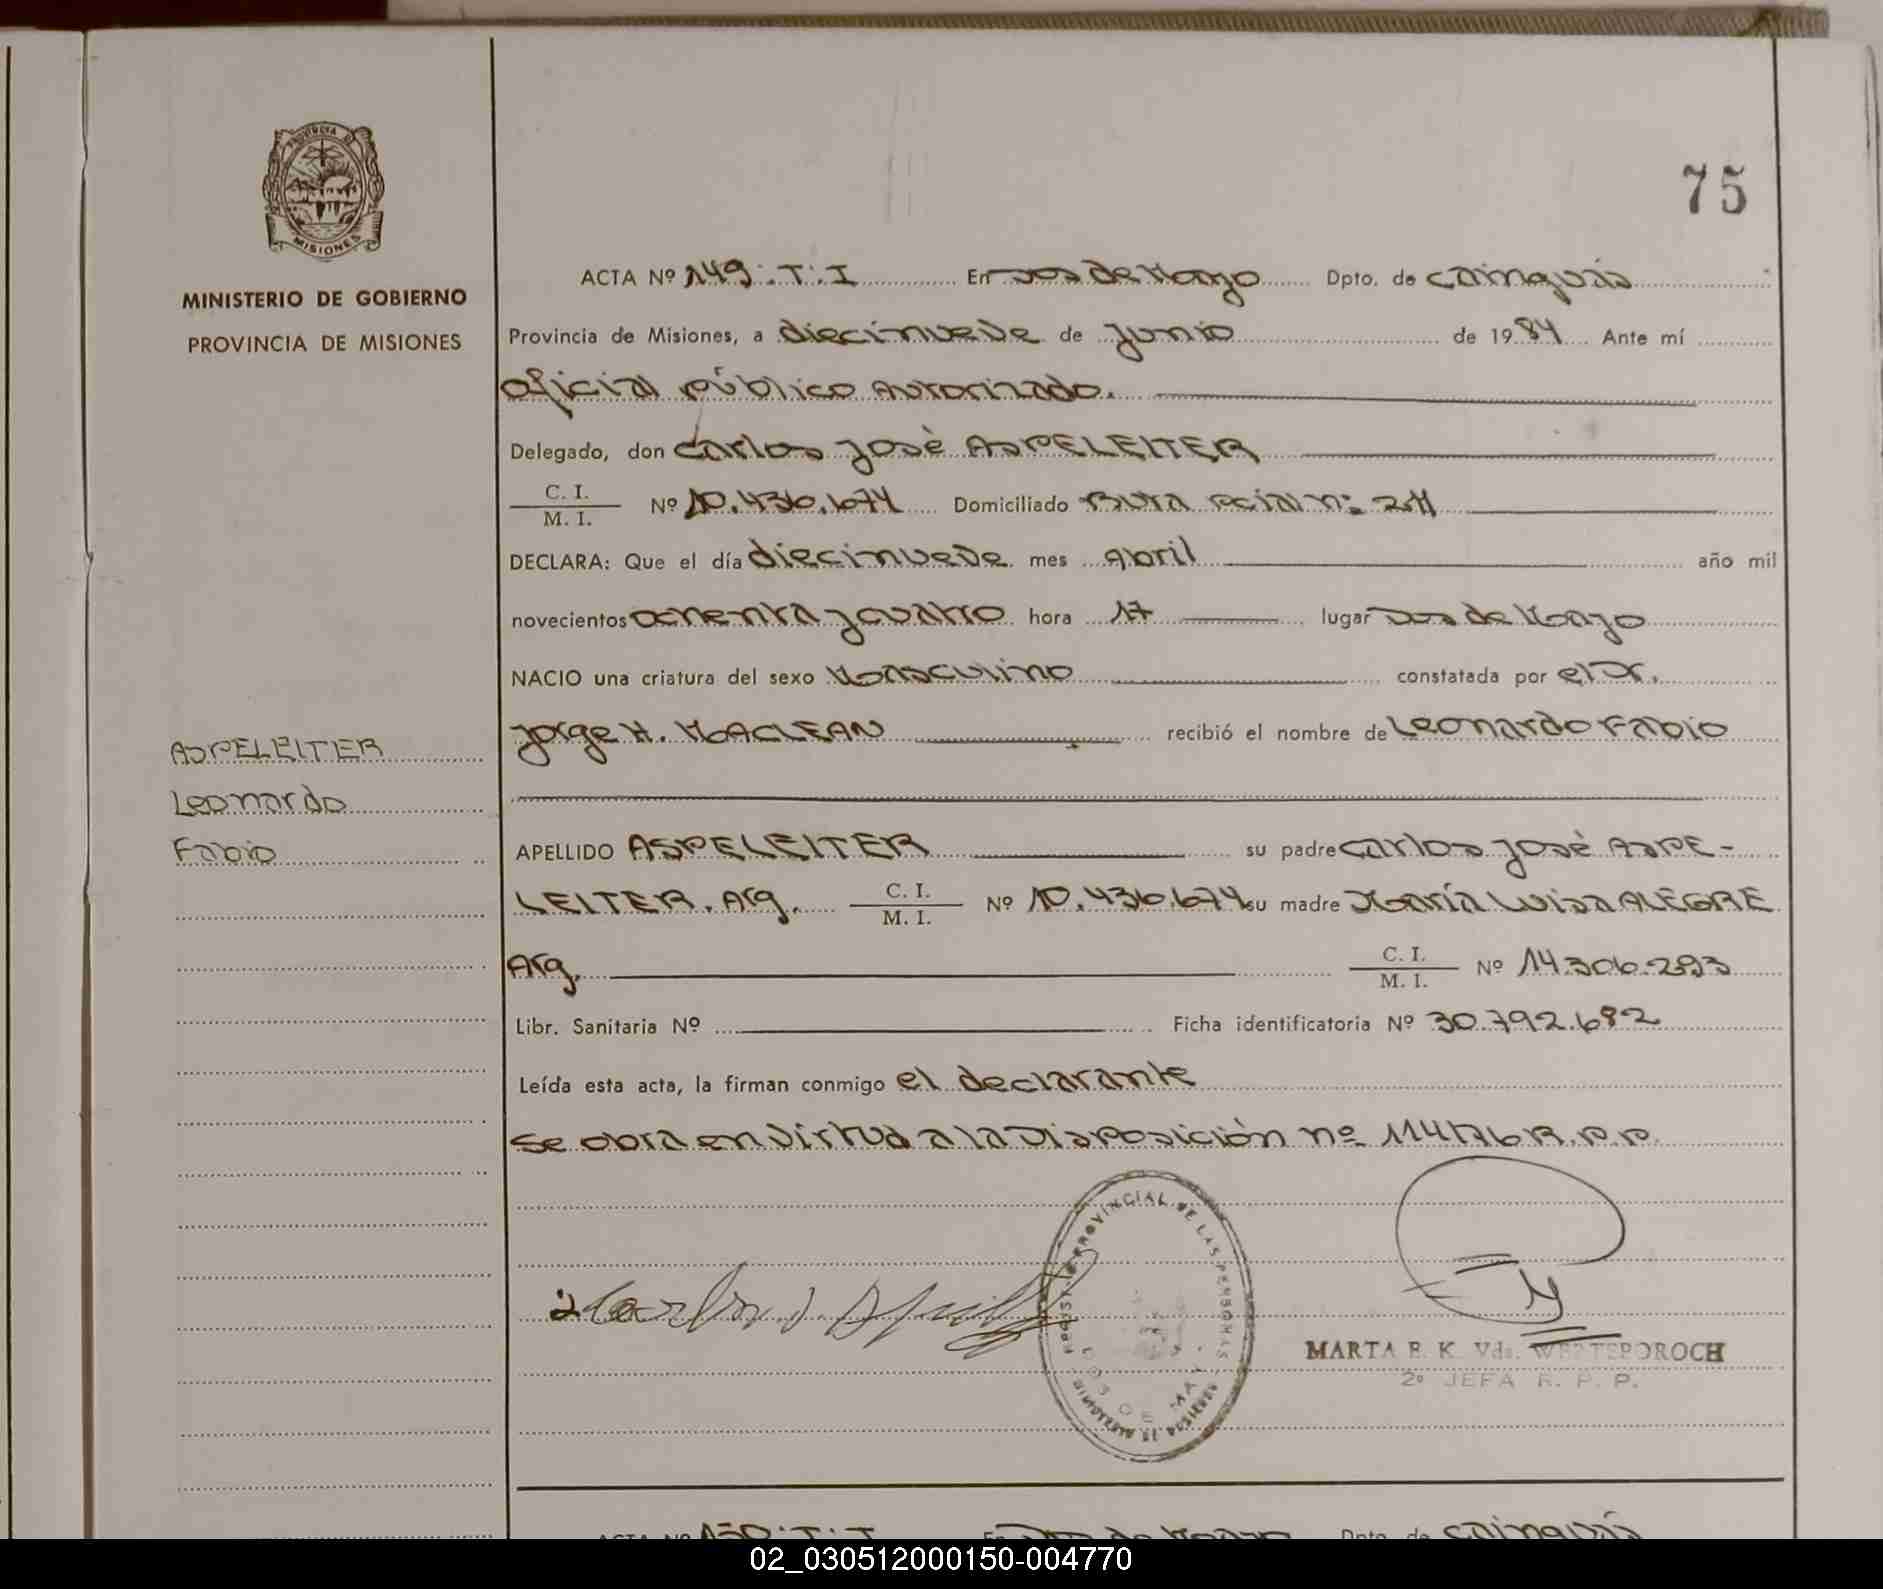 75
PROVINCIA DE
MISIONES
MINISTERIO DE GOBIERNO
PROVINCIA DE MISIONES
ACTA Nº 149.T.I En Dos de Mayo Dpto. de Cainguás
Provincia de Misiones, a diecinueve de junio de 1984 Ante mí
oficial público autorizado.
Delegado, don Carlos José ASPELEITER
C. I. / M. I. Nº 10.436.674 Domiciliado Ruta Pcial nº 211
DECLARA: Que el día diecinueve mes Abril año mil
novecientos ochenta y cuatro hora 17 lugar Dos de Mayo
NACIO una criatura del sexo Masculino constatada por el Dr.
Jorge H. MACLEAN recibió el nombre de Leonardo Fabio
ASPELEITER
Leonardo
Fabio
APELLIDO ASPELEITER su padre Carlos José ASPE-
LEITER. Arg. C. I. / M. I. Nº 10.436.674 su madre María Luisa ALEGRE
Arg. C. I. / M. I. Nº 14.306.293
Libr. Sanitaria Nº Ficha identificatoria Nº 30.792.682
Leída esta acta, la firman conmigo el declarante
Se obra en virtud a la Disposición nº 114/76 R.P.P.
REGISTRO PROVINCIAL DE LAS PERSONAS
DOS DE MAYO
MARTA E. K. Vda. WERTEPOROCH
2º JEFA R. P. P.
ACTA Nº 150.T.I En Dos de Mayo Dpto. de Cainguás
02_030512000150-004770